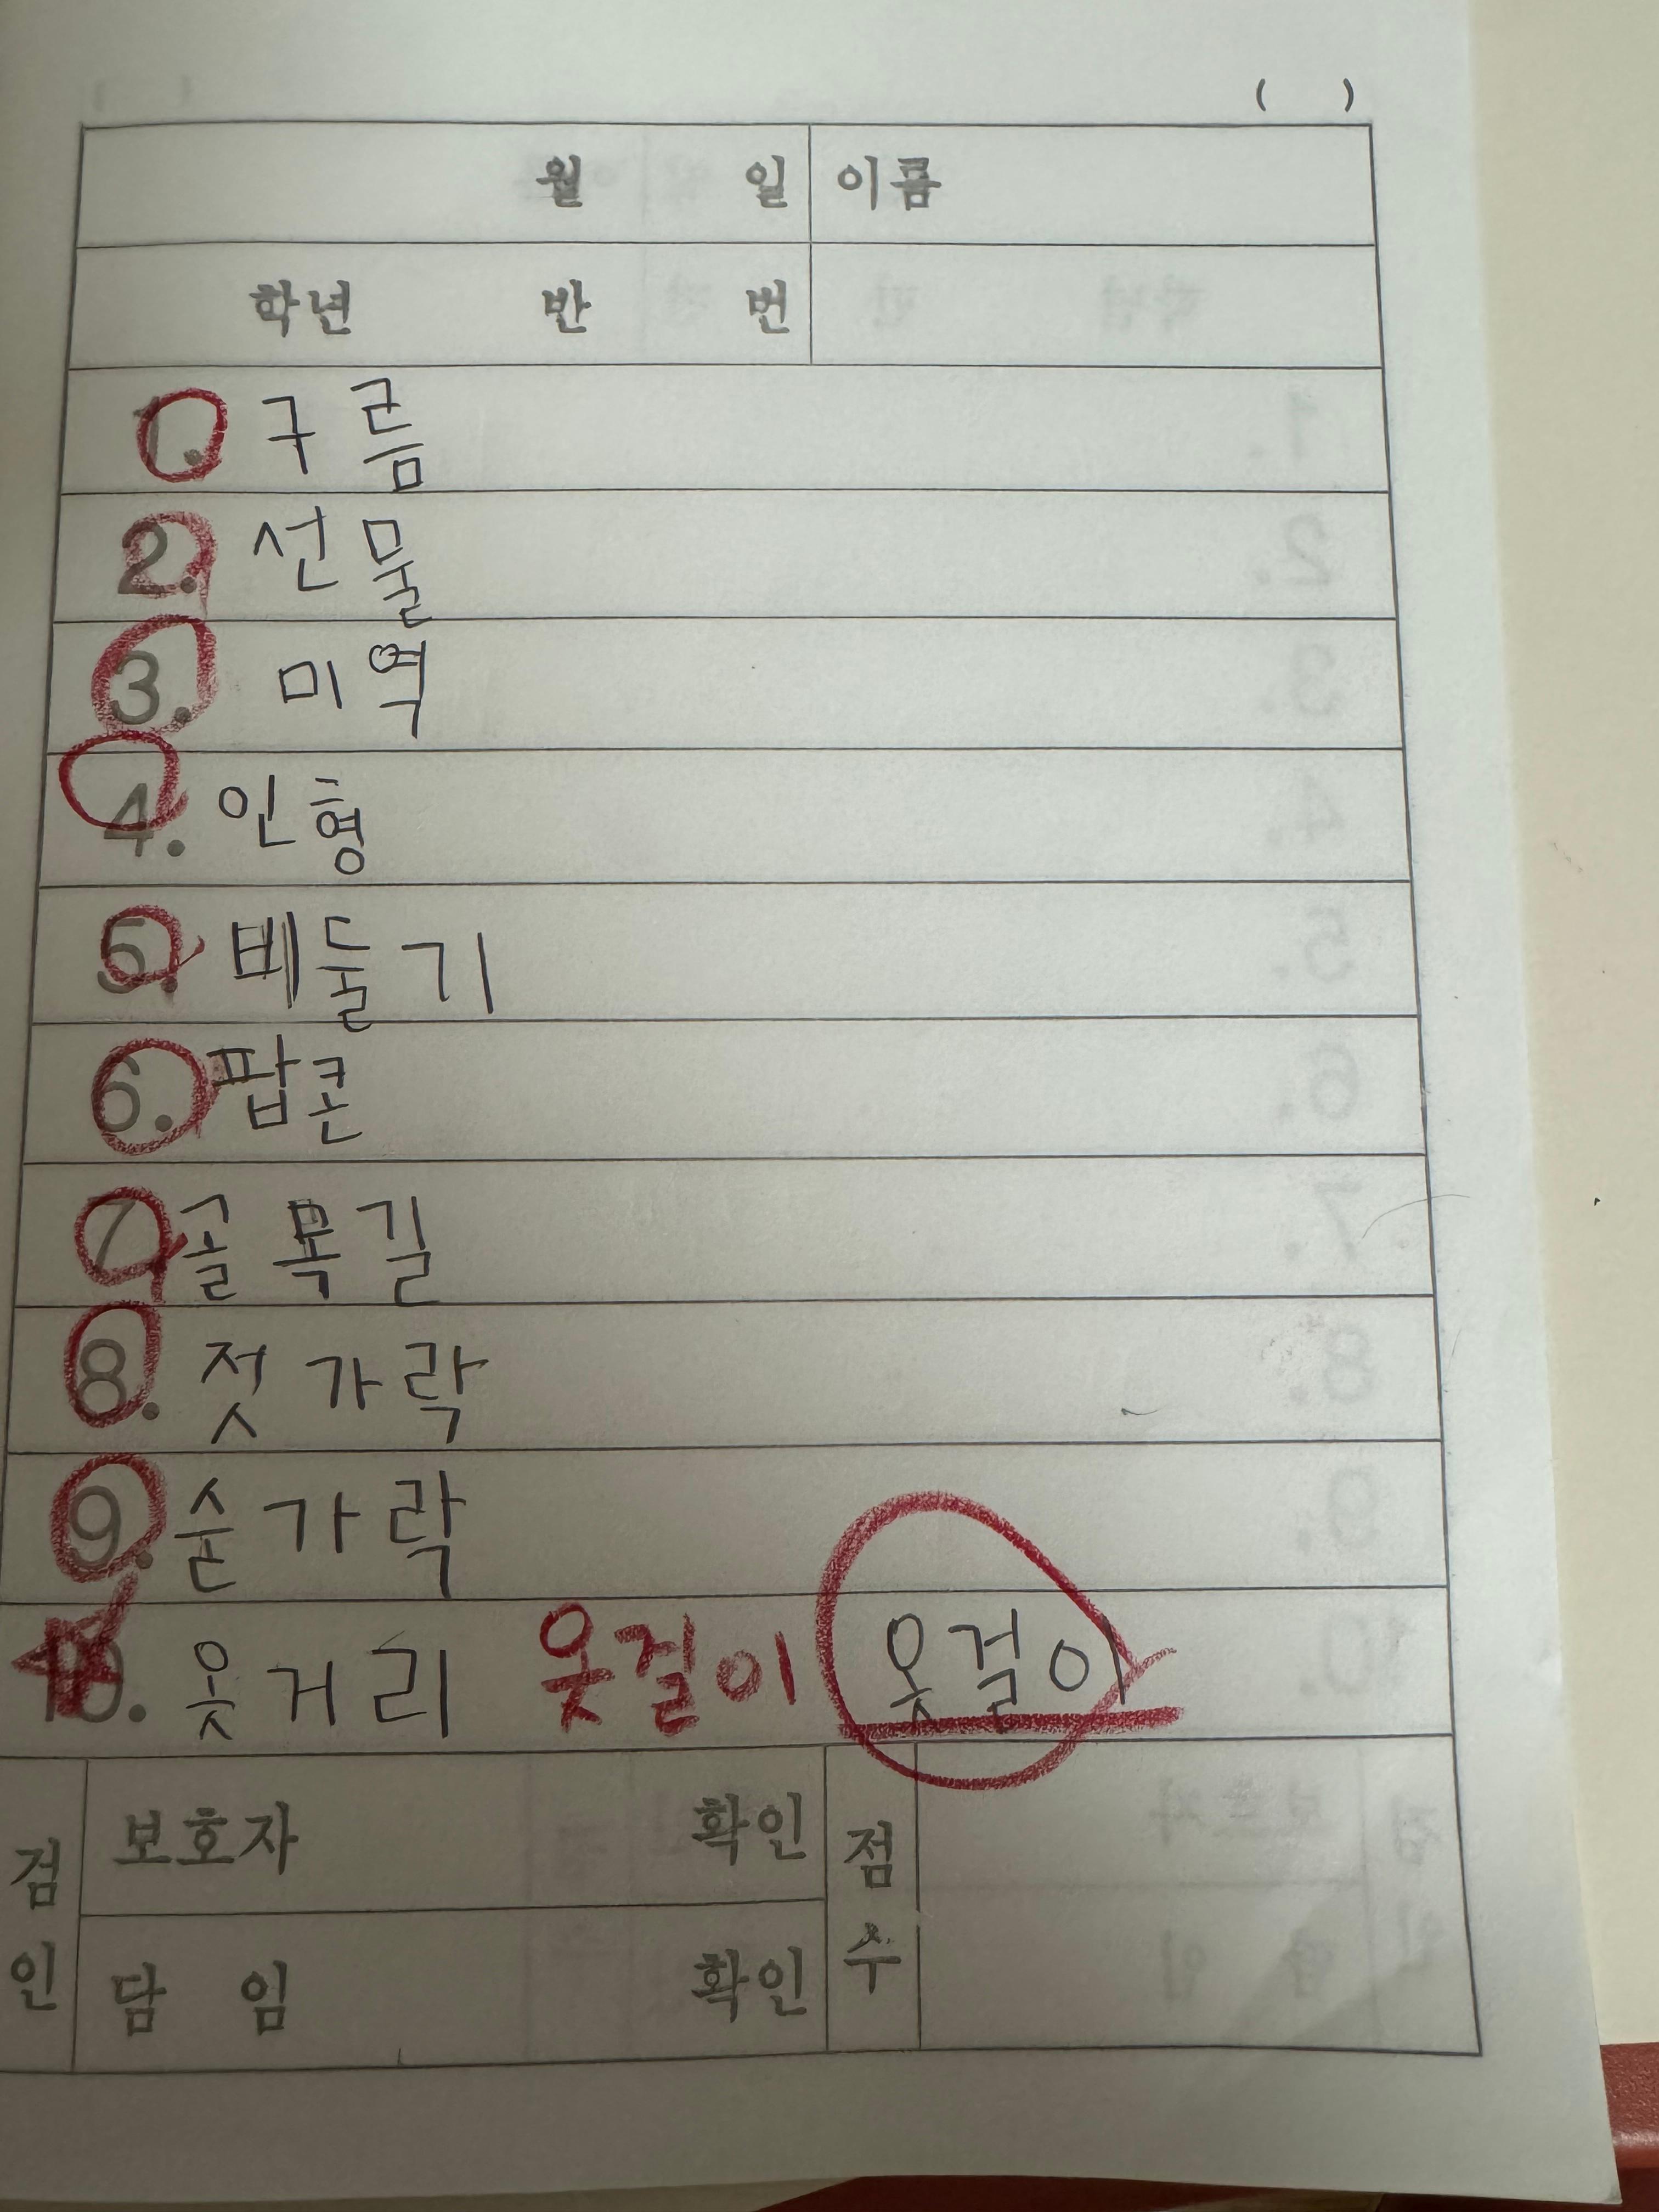 ( )
월 일 이름
학년 반 번
1. 구름
2. 선물
3. 미역
4. 인형
5. 비둘기
6. 팝콘
7. 골목길
8. 젓가락
9. 숟가락
10. 옷거리 옷걸이 옷걸이
검인 보호자 확인 점수
담 임 확인